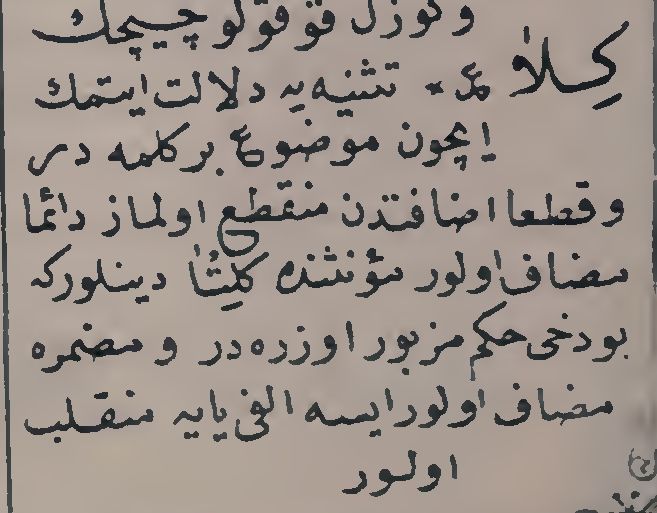 وكوزل قوقولو چيچك
كِلاٰ ع٭ تثنيه يه دلالت ايتمك
ايچون موضوع بر كلمه در
وقطعا اضافتدن منقطع اولماز دائما
مضاف اولور مؤنثنده كِلْتَا دينلور كه
بو دخى حكم مزبور اوزره در و مضمره
مضاف اولور ايسه الفى يايه منقلب
اولور